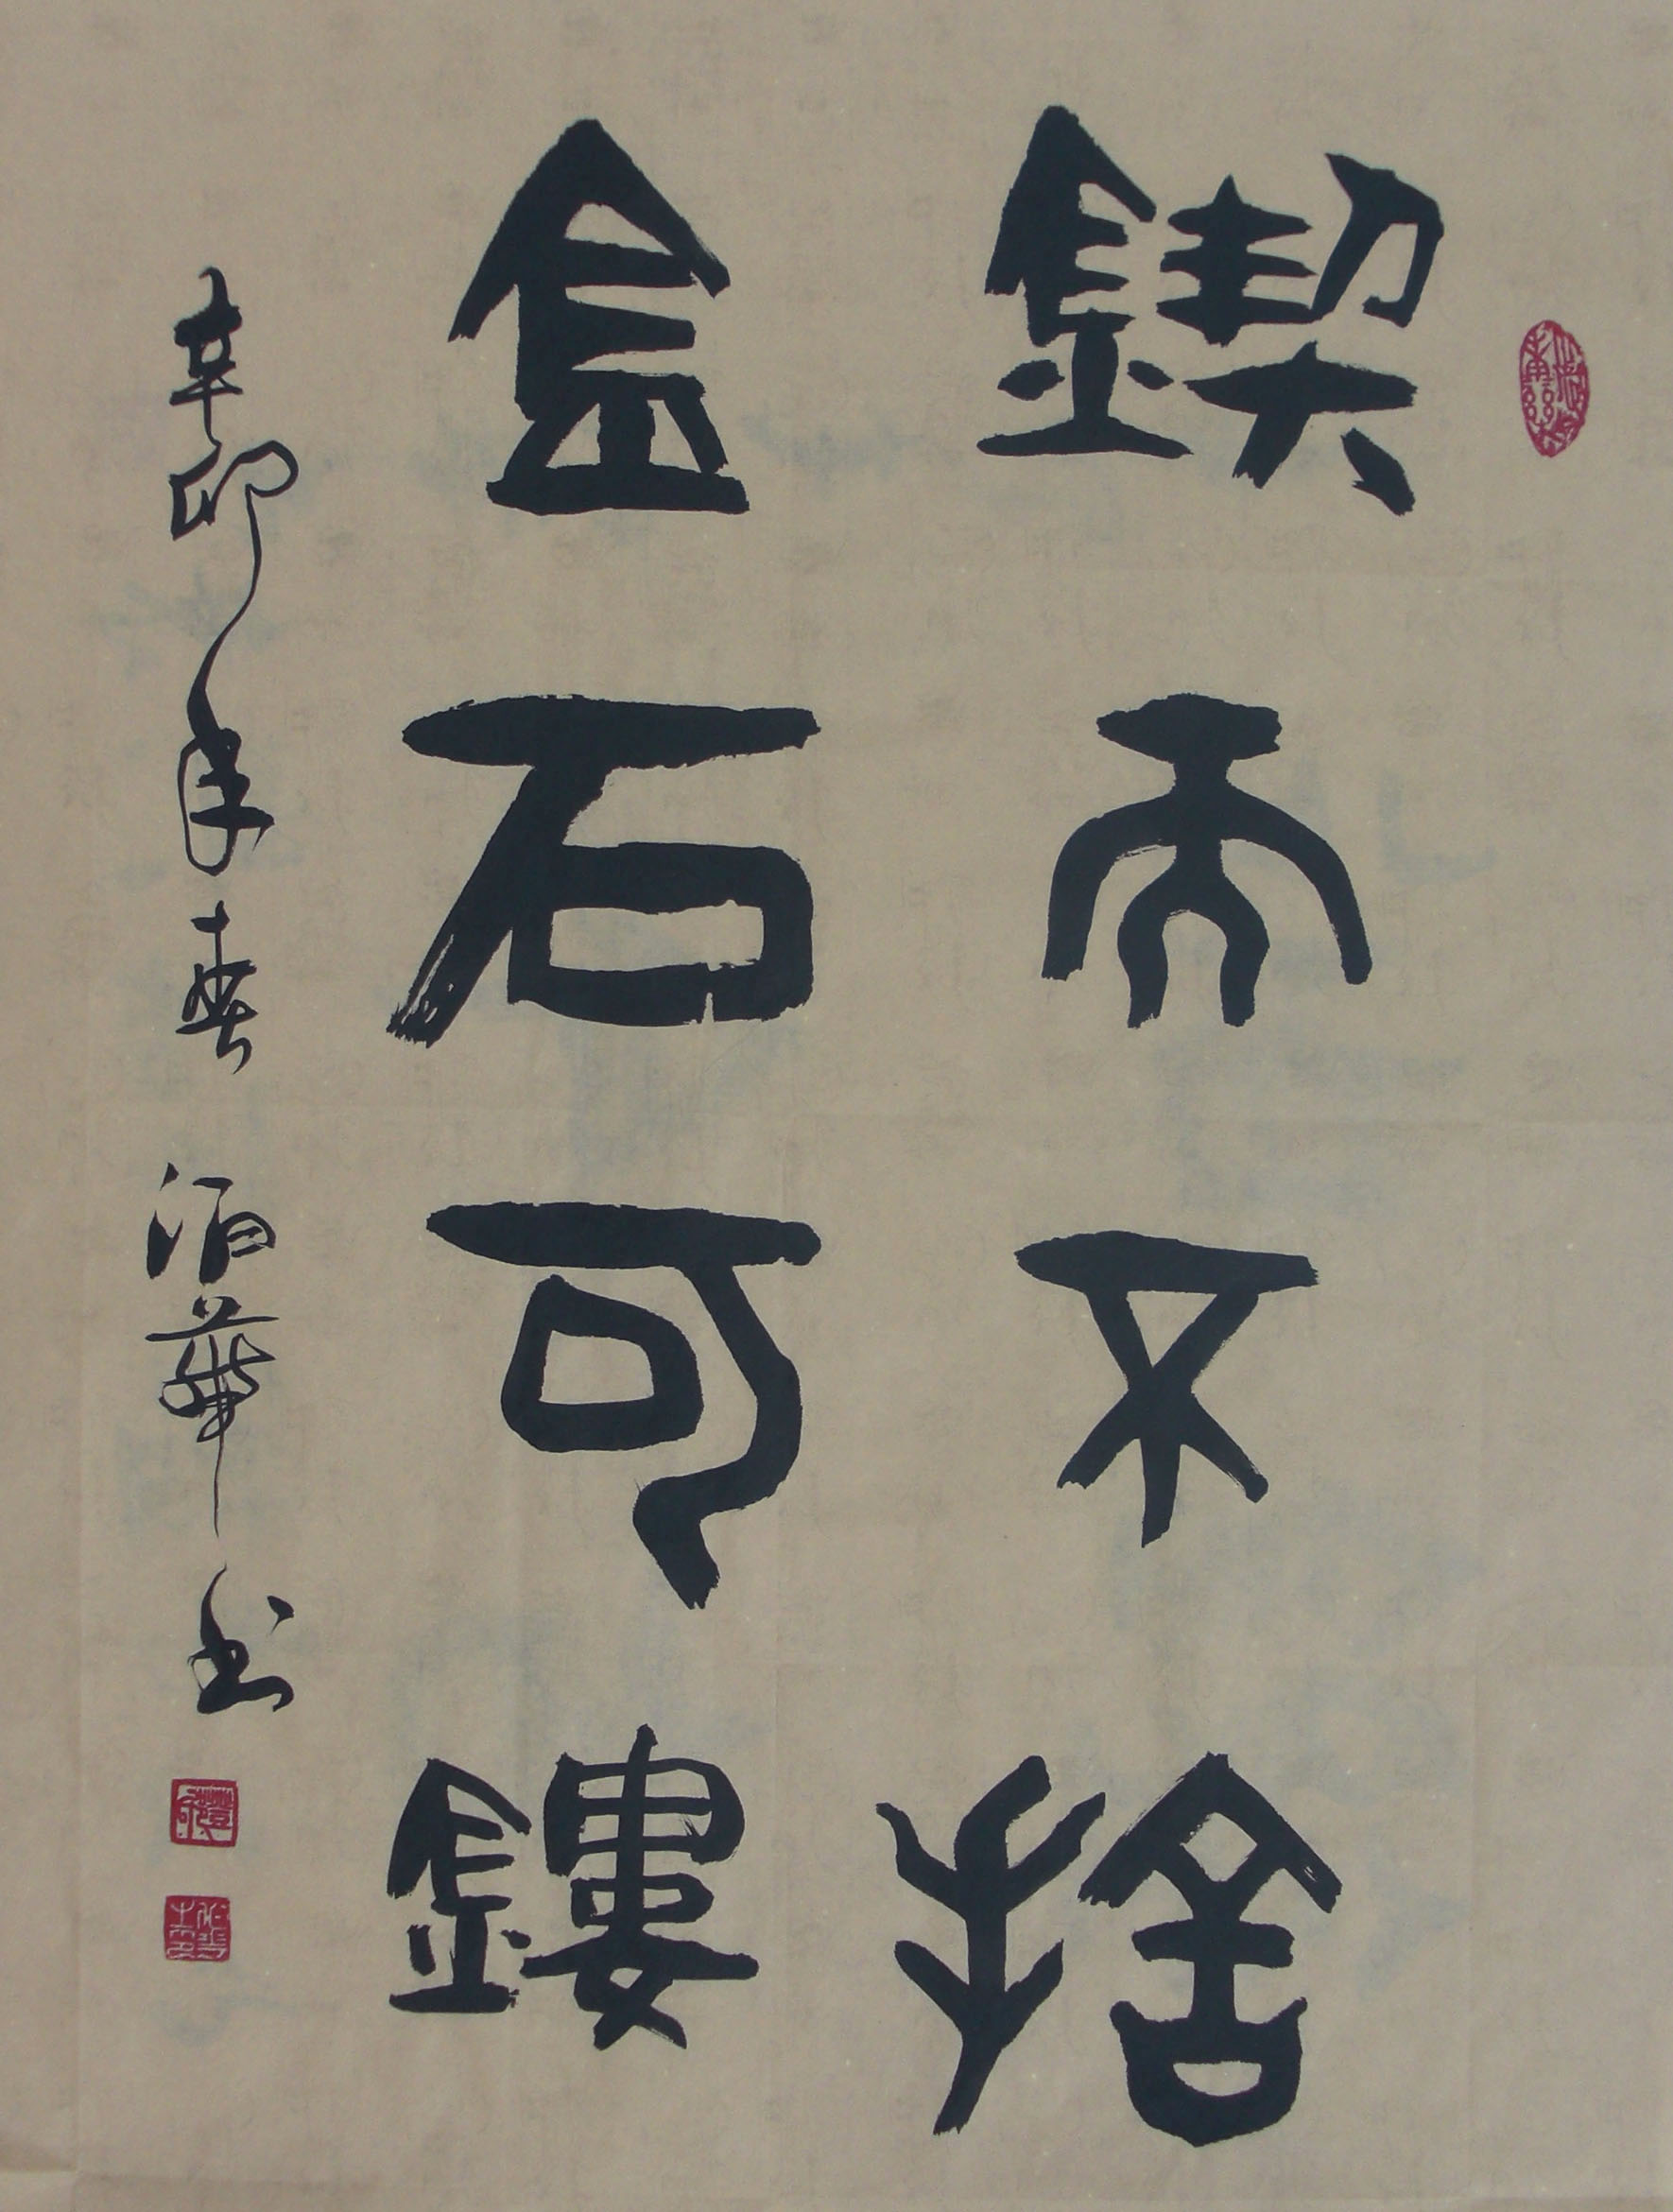 鍥而不捨
金石可鏤
辛卯年春 伯華书